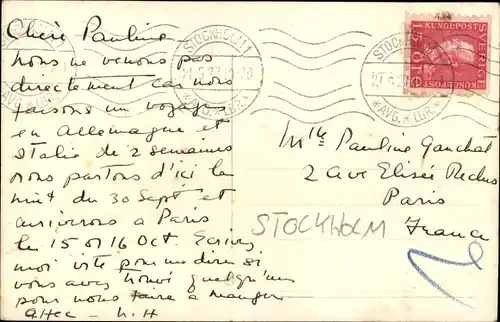 Chère Pauline –
nous ne venons pas
directement car nous
faisons un voyage
en Allemagne et
Italie de 2 semaines
nous partons d'ici la
nuit du 30 Sept et
arriverons a Paris
le 15 ou 16 Oct. Ecrivez
moi vite pour me dire si
vous avez trouvé quelqu'un
pour nous faire a manger
STOCKHOLM 1
STOCKHOLM 1
*AVG.*LBR*
*AVG.*LBR*
KUNGL·POST
SVERIGE
15 ÖRE
KUNGL·POST
Mlle Pauline Ganchat
2 ave Elisée Reclus
Paris
France
STOCKHOLM